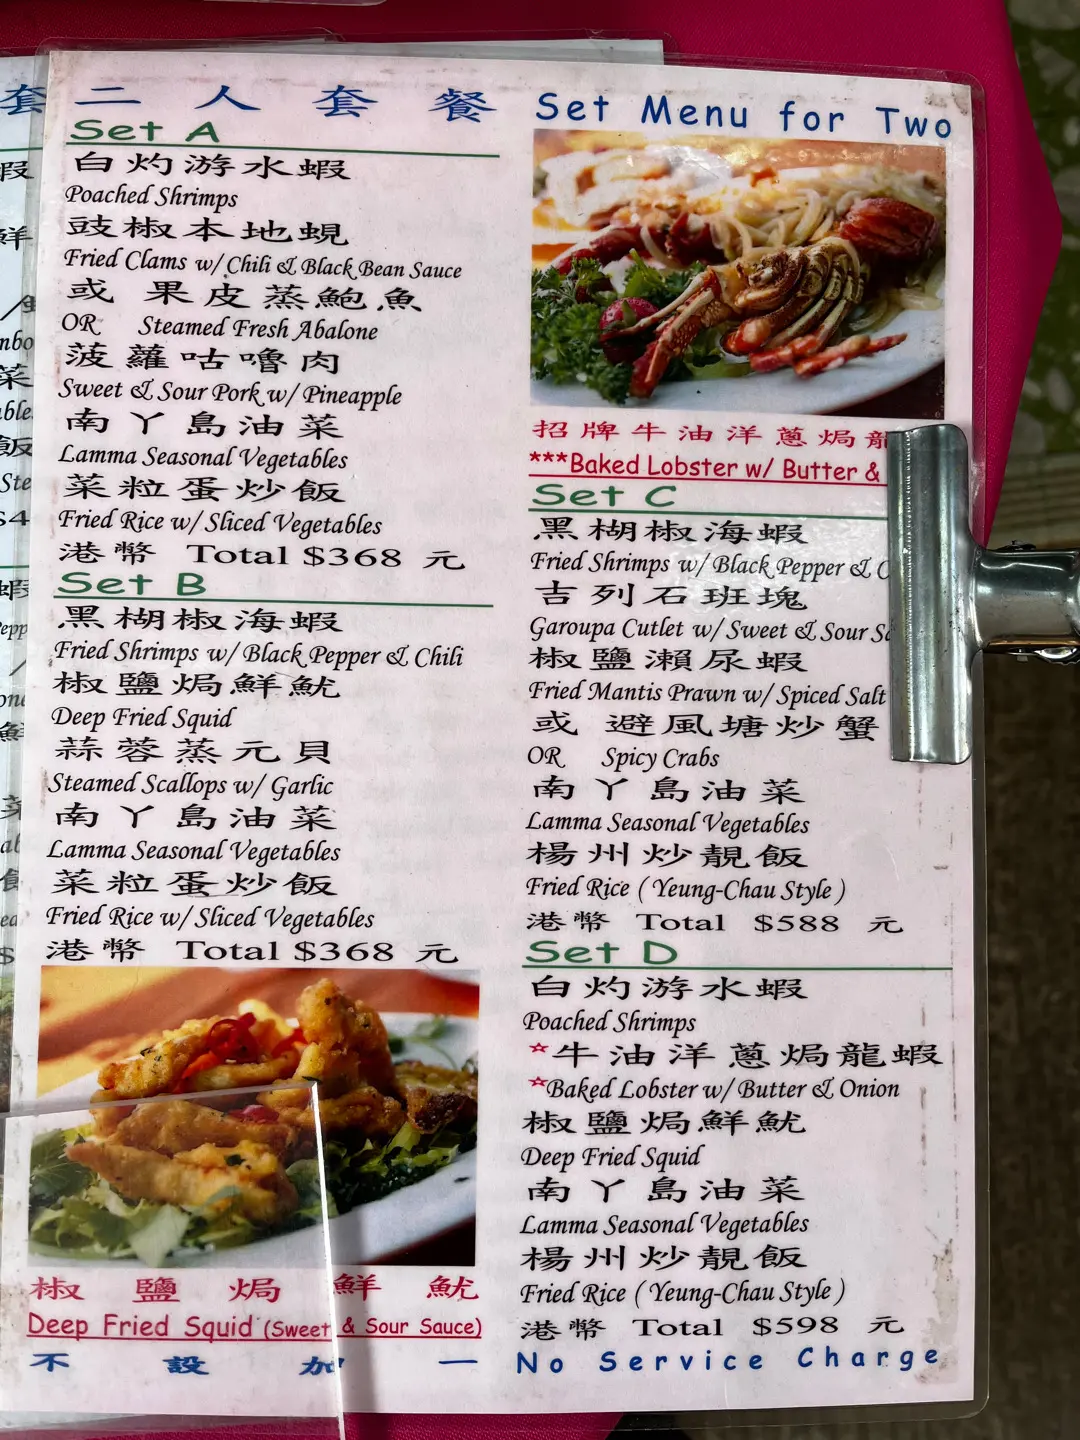 二人套餐 Set Menu for Two
Set A
白灼游水蝦
Poached Shrimps
豉椒本地蜆
Fried Clams w/ Chili & Black Bean Sauce
或 果皮蒸鮑魚
OR Steamed Fresh Abalone
菠蘿咕嚕肉
Sweet & Sour Pork w/ Pineapple
南丫島油菜
Lamma Seasonal Vegetables
菜粒蛋炒飯
Fried Rice w/ Sliced Vegetables
港幣 Total $368 元
Set B
黑椒海蝦
Fried Shrimps w/ Black Pepper & Chili
椒鹽焗鮮魷
Deep Fried Squid
蒜蓉蒸元貝
Steamed Scallops w/ Garlic
南丫島油菜
Lamma Seasonal Vegetables
菜粒蛋炒飯
Fried Rice w/ Sliced Vegetables
港幣 Total $368 元
椒鹽焗鮮魷
Deep Fried Squid (Sweet & Sour Sauce)
招牌牛油洋蔥焗
***Baked Lobster w/ Butter &
Set C
黑椒海蝦
Fried Shrimps w/ Black Pepper &
吉列石班塊
Garoupa Cutlet w/ Sweet & Sour
椒鹽瀨尿蝦
Fried Mantis Prawn w/ Spiced Salt
或 避風塘炒蟹
OR Spicy Crabs
南丫島油菜
Lamma Seasonal Vegetables
楊州炒靚飯
Fried Rice ( Yeung-Chau Style )
港幣 Total $588 元
Set D
白灼游水蝦
Poached Shrimps
*牛油洋蔥焗龍蝦
*Baked Lobster w/ Butter & Onion
椒鹽焗鮮魷
Deep Fried Squid
南丫島油菜
Lamma Seasonal Vegetables
楊州炒靚飯
Fried Rice ( Yeung-Chau Style )
港幣 Total $598 元
不設加一 No Service Charge